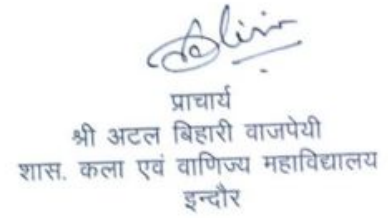 प्राचार्य
श्री अटल बिहारी वाजपेयी
शास. कला एवं वाणिज्य महाविद्यालय
इन्दौर